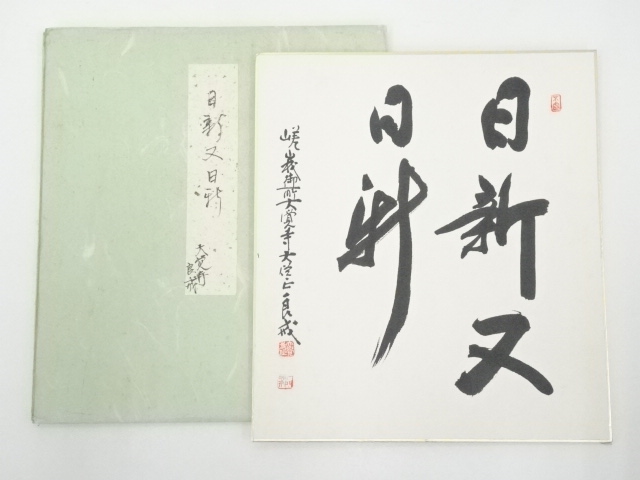 日新又
日新
嵯峨御所大覚寺大僧正良戒
日新又日新
大覚寺
良戒